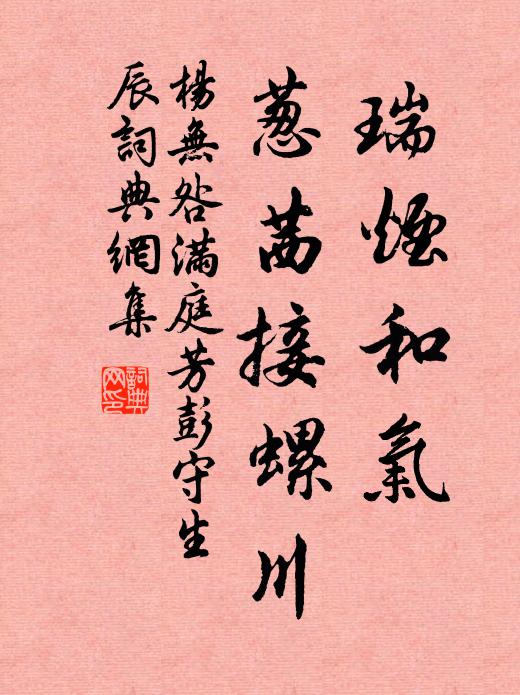 瑞煙和氣
蔥茜接螺川
楊無咎滿庭芳彭守生
辰詞典網集
詞典
網印